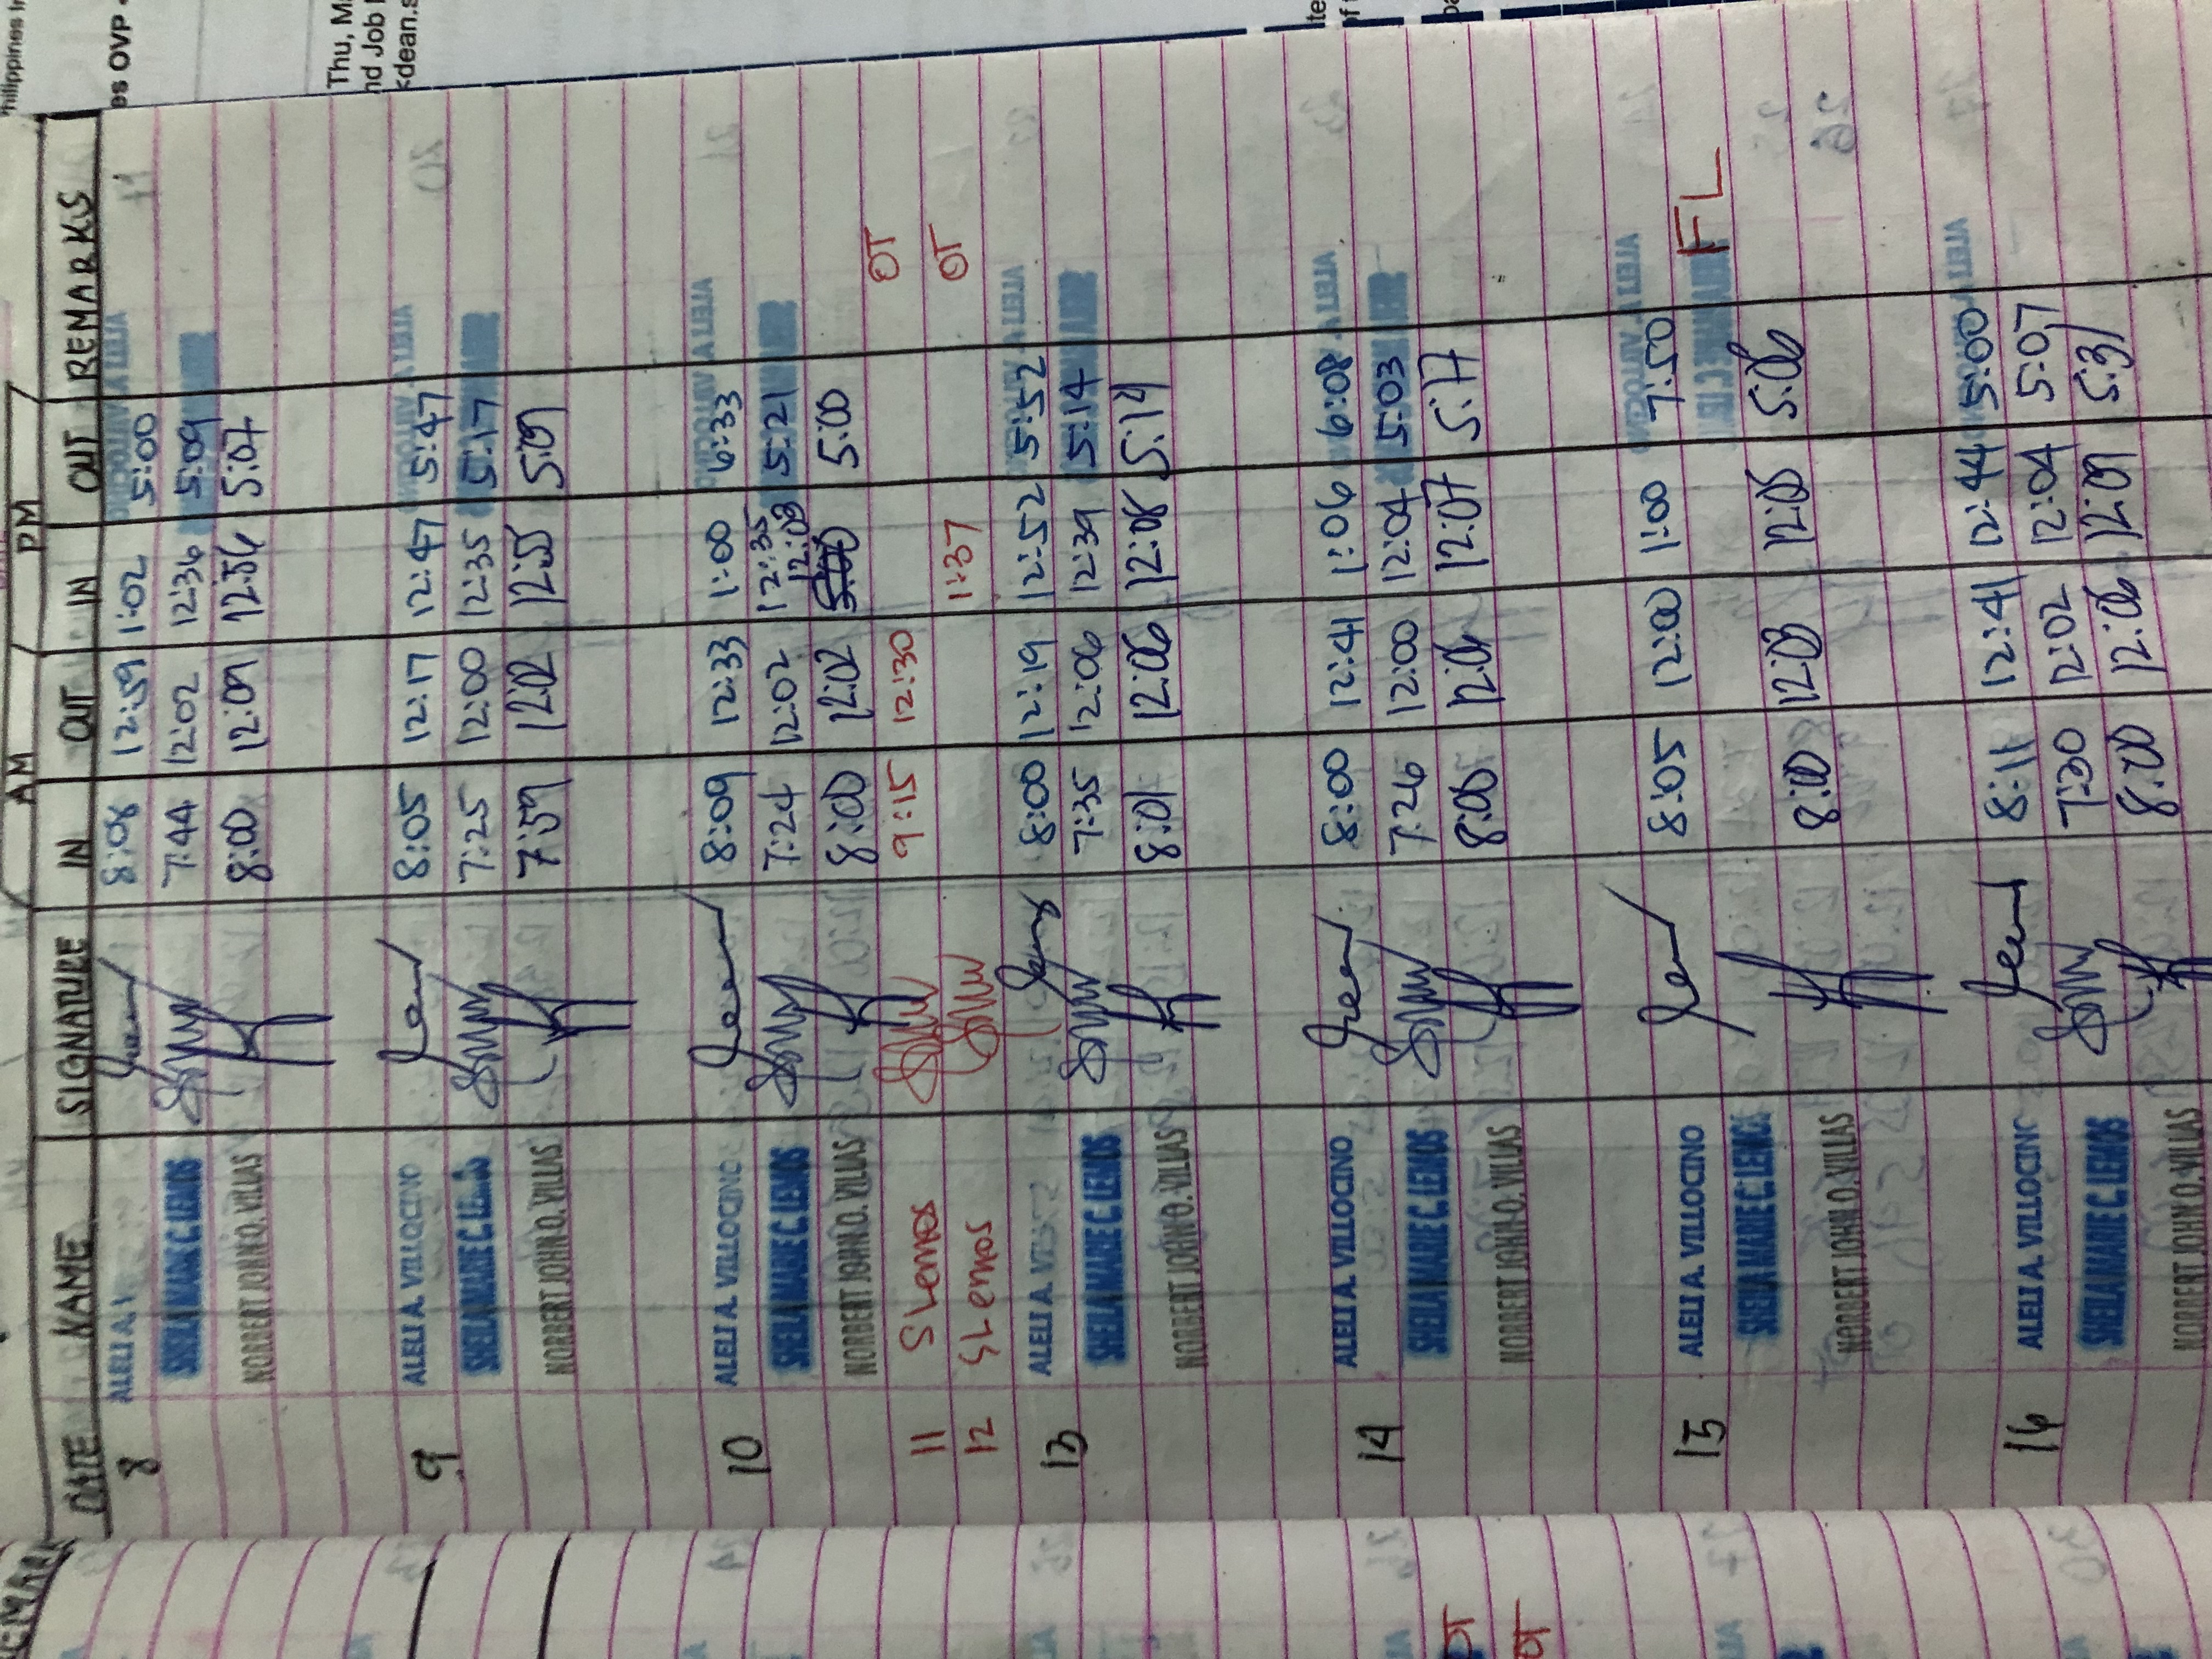 es OVP
Thu, M
nd Job
<dean.s
AM PM
DATE NAME SIGNATURE IN OUT IN OUT REMARKS
8 ALELI A. 8:08 12:59 1:02 5:00
SHEILA MARIE C. LEMOS 7:44 12:02 12:36 5:09
NORBERT JOHN O. VILLAS 8:00 12:09 12:56 5:07
9 ALELI A. VILLOCINO 8:05 12:17 12:47 5:47
SHEILA MARIE C. LEMOS 7:25 12:00 12:35 5:17
NORBERT JOHN O. VILLAS 7:59 12:02 12:55 5:09
10 ALELI A. VILLOCINO 8:09 12:33 1:00 6:33
SHEILA MARIE C. LEMOS 7:24 12:02 12:35 5:21
NORBERT JOHN O. VILLAS 8:00 12:02 12:03 5:00
11 SLemos 9:15 12:30 OT
12 SLemos 1:37 OT
13 ALELI A. 8:00 12:19 12:52 5:52
SHEILA MARIE C. LEMOS 7:35 12:06 12:39 5:14
NORBERT JOHN O. VILLAS 8:01 12:06 12:08 5:14
14 ALELI A. VILLOCINO 8:00 12:41 1:06 6:08
SHEILA MARIE C. LEMOS 7:26 12:00 12:04 5:03
NORBERT JOHN O. VILLAS 8:00 12:06 12:07 5:17
15 ALELI A. VILLOCINO 8:05 12:00 1:00 7:50
SHEILA MARIE C. LEMOS FL
NORBERT JOHN O. VILLAS 8:00 12:03 12:05 5:06
16 ALELI A. VILLOCINO 8:11 12:41 12:44 5:00
SHEILA MARIE C. LEMOS 7:30 12:02 12:04 5:07
NORBERT JOHN O. VILLAS 8:00 12:06 12:09 5:31
OT
OT